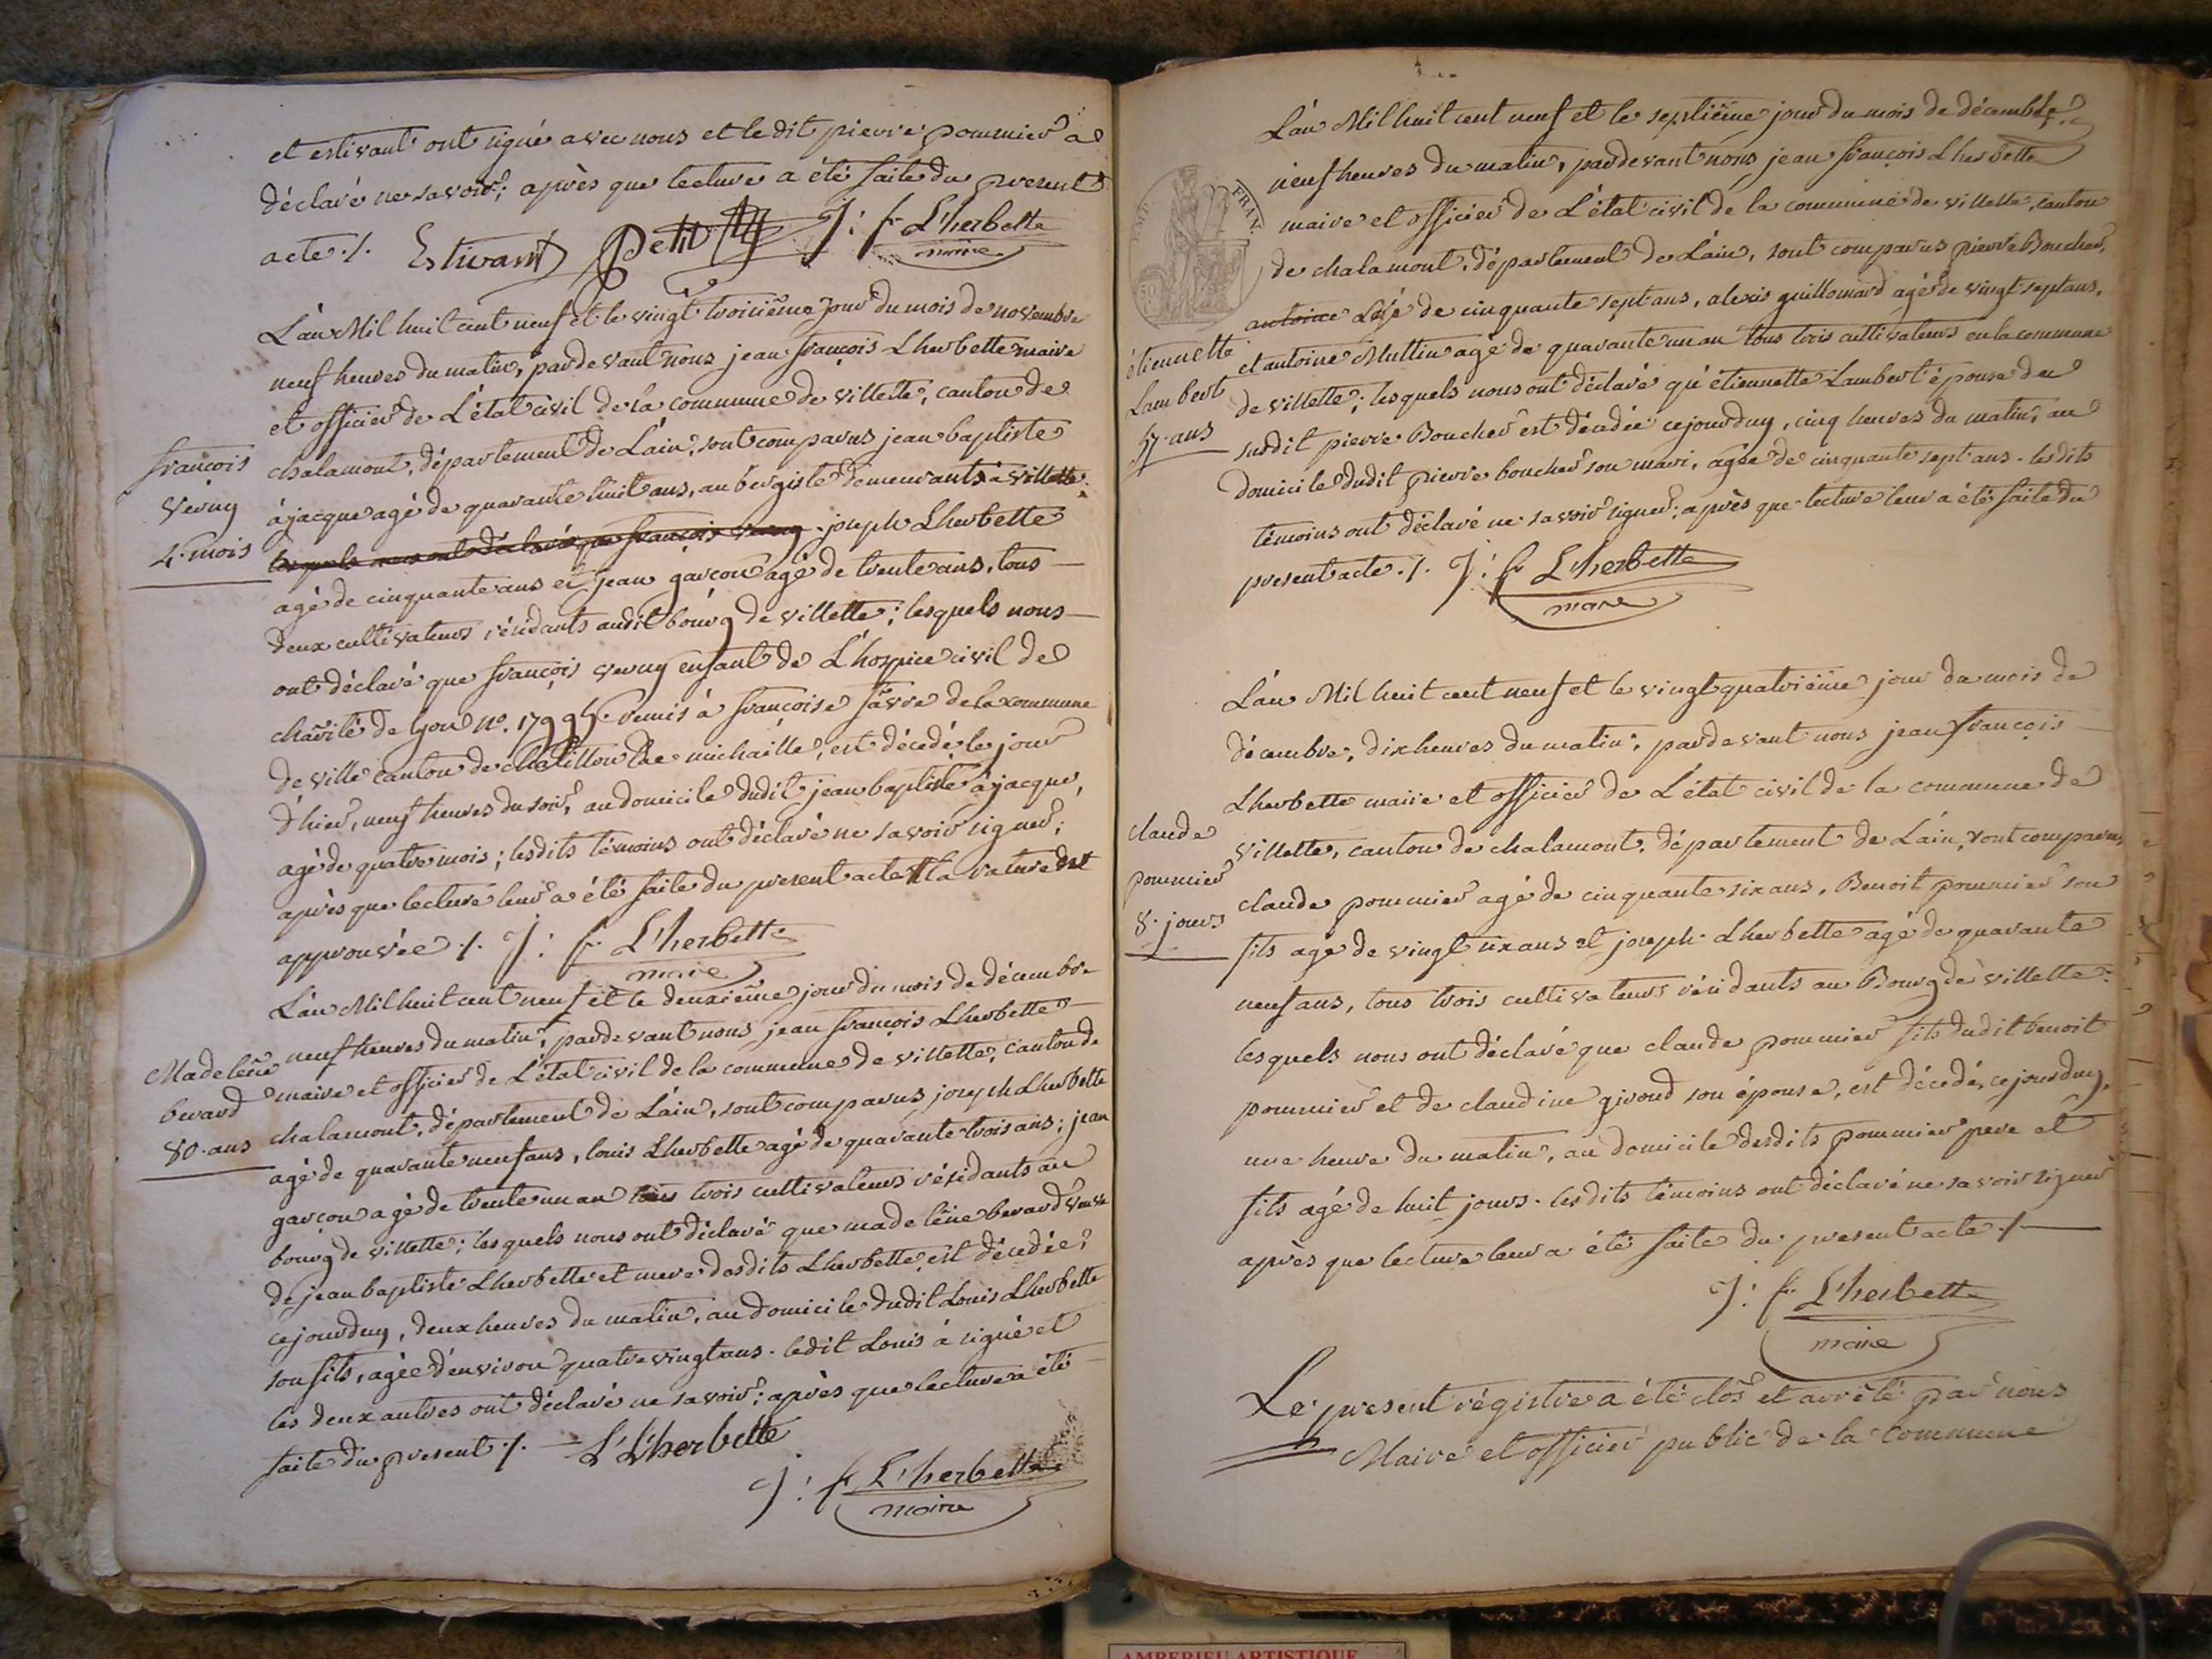 et estivant ont signé avec nous et ledit pierre pommier a
déclaré ne savoir; après que lecture a été faite du present
acte ./. Estivant Petit J: f. L'herbette
maire
L'an Mil huit cent neuf et le vingt troisième jour du mois de novembre
neuf heures du matin, pardevant nous jean françois Lherbette maire
et officier de L'état civil de la commune de villette, canton de
chalamont, département de L'ain, sont comparus jean baptiste
françois
verny
4. mois
ajacque agé de quarante huit ans, aubergiste demeurants à villette.
lesquels nous ont déclaré que françois verny joseph Lherbette
agé de cinquante ans et jean garçon agé de trente ans, tous
deux cultivateurs résidants audit bourg de villette; lesquels nous
ont déclaré que françois verny enfant de L'hospice civil de
charité de Lyon no. remis à françoise favre de la commune
de ville canton de chatillon de michaille, est décedé le jour
d'hier, neuf heures du soir, au domicile dudit jean baptiste ajacque,
agé de quatre mois; lesdits témoins ont déclaré ne savoir signer;
après que lecture leur a été faite du present acte la rature
approuvée ./. J: f. L'herbette
maire
L'an Mil huit cent neuf et le deuxième jour du mois de décembre
neuf heures du matin, pardevant nous jean françois Lherbette
Madeleine
berard
80. ans
maire et officier de L'état civil de la commune de villette, canton de
chalamont, département de L'ain, sont comparus joseph Lherbette
agé de quarante neuf ans, louis Lherbette agé de quarante trois ans; jean
garçon agé de trente un an tous trois cultivateurs résidants au
bourg de villette; lesquels nous ont déclaré que madeleine berard veuve
de jean baptiste Lherbette et mere desdits Lherbette, est décedée
cejourduy, deux heures du matin, au domicile dudit Louis Lherbette
son fils, agée d'environ quatre vingt ans. ledit Louis à signé et
les deux autres ont déclaré ne savoir; après que lecture a été
faite du present ./. L Lherbette
J: f. L'herbette
maire
L'an Mil huit cent neuf et le septième jour du mois de décembre
neuf heures du matin, pardevant nous jean françois Lherbette
maire et officier de L'état civil de la commune de villette, canton
EMP. FRAN.
de chalamont, département de L'ain, sont comparus pierre Boucher,
antoine agé de cinquante sept ans, alexis guillomard agé de vingt sept ans,
étiennette
Lambert
57. ans
et antoine Muttin agé de quarante un an tous trois cultivateurs en la commune
de villette; lesquels nous ont déclaré qu'étiennette Lambert épouse du
susdit pierre Boucher est décedée cejourduy, cinq heures du matin, au
domicile dudit pierre boucher son mari, agée de cinquante sept ans. lesdits
témoins ont déclaré ne savoir signer; après que lecture leur a été faite du
present acte ./. J: f. L'herbette
maire
L'an Mil huit cent neuf et le vingt quatrième jour du mois de
décembre, dix heures du matin, pardevant nous jean françois
Lherbette maire et officier de L'état civil de la commune de
claude
pommier
8. jours
villette, canton de chalamont, département de L'ain, sont comparus
claude pommier agé de cinquante six ans, Benoit pommier son
fils agé de vingt six ans et joseph Lherbette agé de quarante
neuf ans, tous trois cultivateurs résidants au Bourg de villette:
lesquels nous ont déclaré que claude pommier fils dudit benoit
pommier et de claudine giroud son épouse, est décedé, cejourduy,
une heure du matin, au domicile desdits pommier pere et
fils agé de huit jours. lesdits témoins ont déclaré ne savoir signer
après que lecture leur a été faite du present acte ./.
J: f. L'herbette
maire
Le present régistre a été clos et arrêté par nous
Maire et officier public de la Commune
AMBERIEU ARTISTIQUE